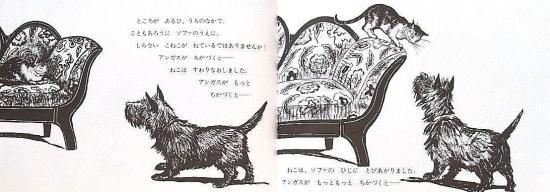 ところが あるひ、うちのなかで、
こともあろうに ソファのうえに、
しらない こねこが ねているではありませんか!
アンガスが ちかづくと――
ねこは すわりなおしました。
アンガスが もっと
ちかづくと――
ねこは、ソファの ひじに とびあがりました。
アンガスが もっともっと ちかづくと――